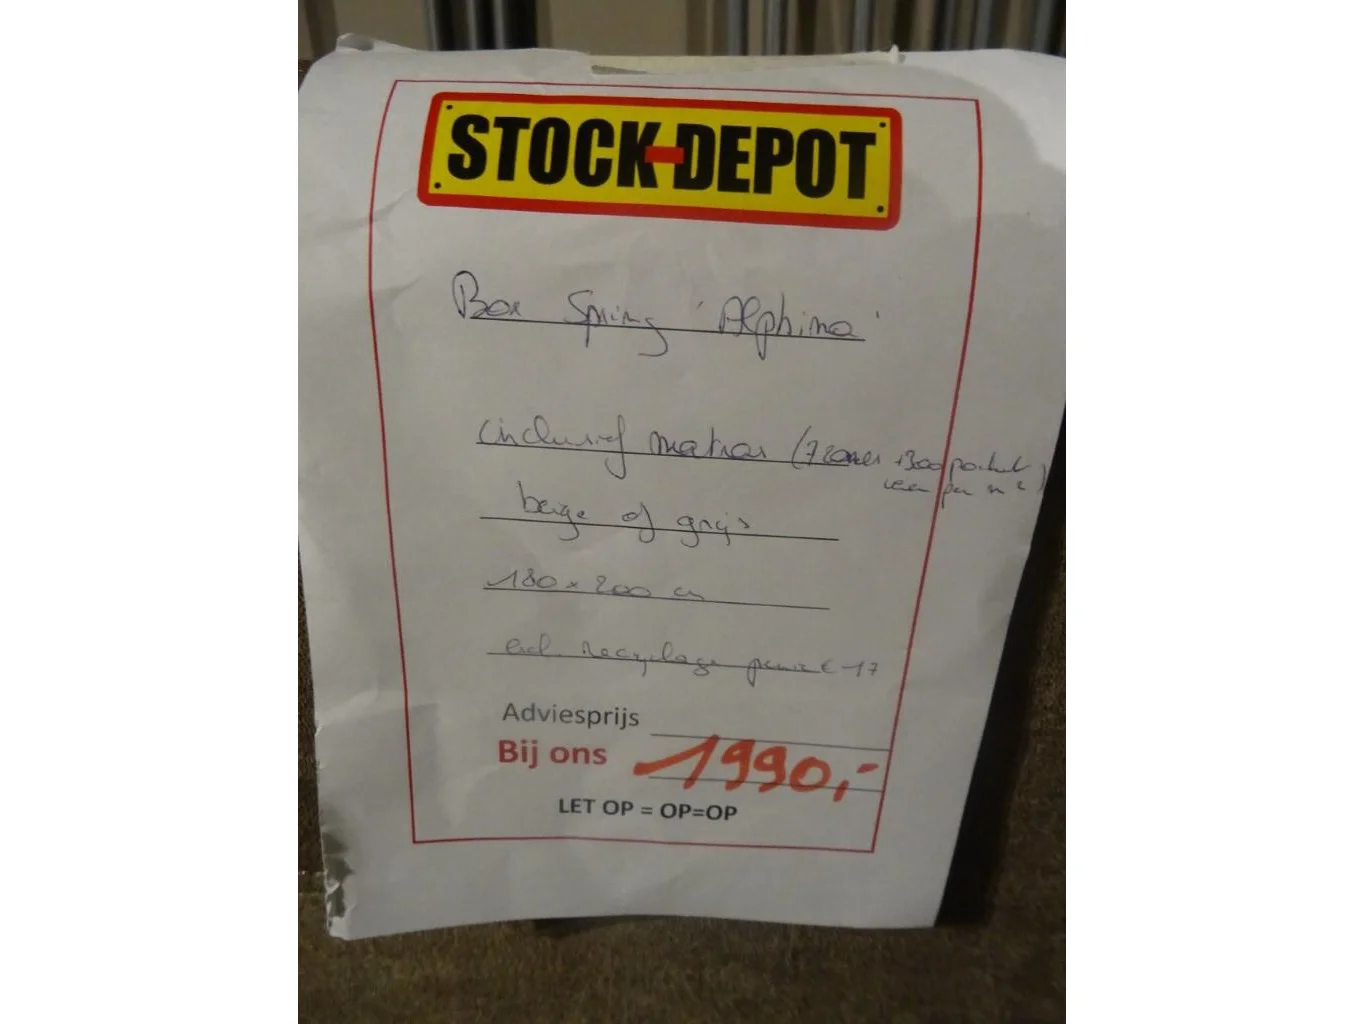 STOCK-DEPOT
Box Spring 'Alphina'
inclusief matras (7 zones +300 pocket
veren per m²)
beige of grijs
180 x 200 cm
excl. recyclage € 17
Adviesprijs
Bij ons 1990,-
LET OP = OP=OP